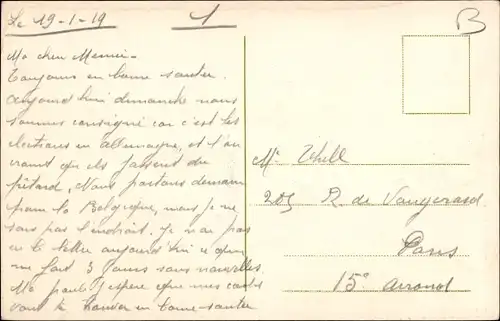 Le 19-1-19
1
B
Ma chère Mémé -
Toujours en bonne santée.
aujourd'hui dimanche nous
sommes consigné car c'est les
élections en allemagne, et l'on
craint que ils fassent du
pétard, Nous partons demain
pour la Belgique, mais je ne
sais pas l'endroit. Je n'ai pas
eu de lettre aujourd'hui ce qui
me fait 3 jours sans nouvelles.
Ma j'espère que mes cartes
vont te trouver en bonne santer
Mr Thill
205 R. de Vaugirard
Paris
15e arrond